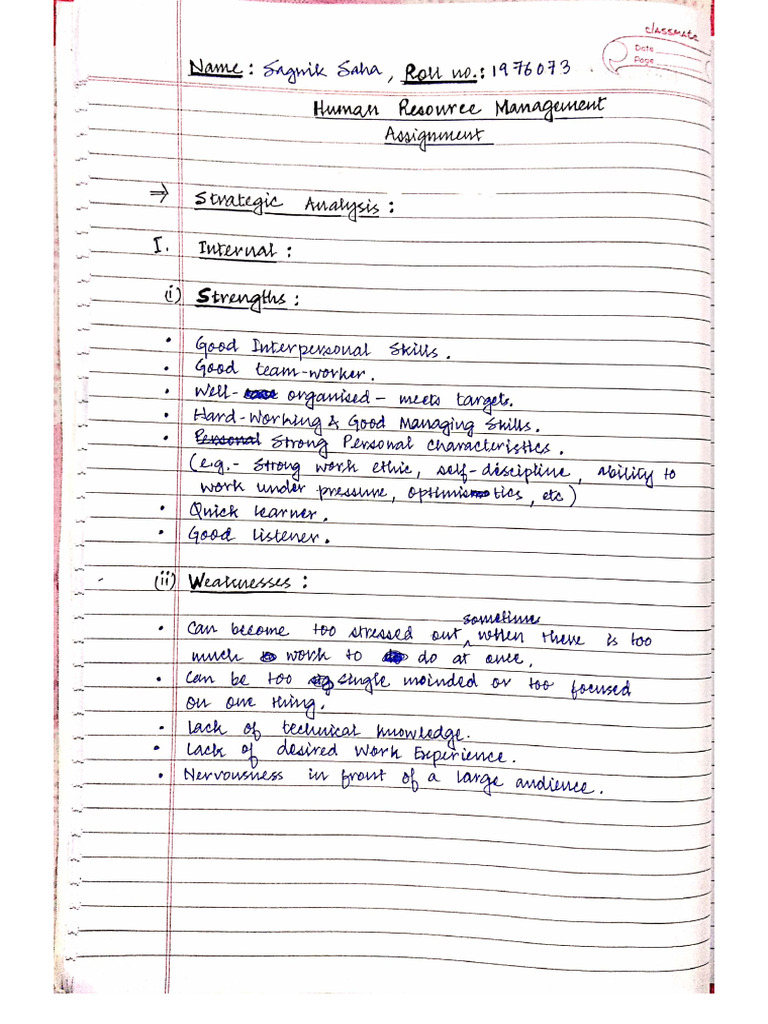 classmate
Date
Page
Name: Sagnik Saha, Roll no.: 1976073.
Human Resource Management
Assignment
⇒ Strategic Analysis:
I. Internal:
(i) Strengths:
• Good Interpersonal Skills.
• Good team-worker.
• Well- organised – meets targets.
• Hard-Working & Good Managing Skills.
• Personal Strong Personal characteristics.
(e.g.- Strong work ethic, self-discipline, ability to
work under pressure, optimistics, etc)
• Quick learner.
• Good listener.
(ii) Weaknesses:
• Can become too stressed out sometime when there is too
much work to do at once.
• Can be too single moinded or too focused
on one thing.
• Lack of technical knowledge.
• Lack of desired Work Experience.
• Nervousness in front of a large audience.